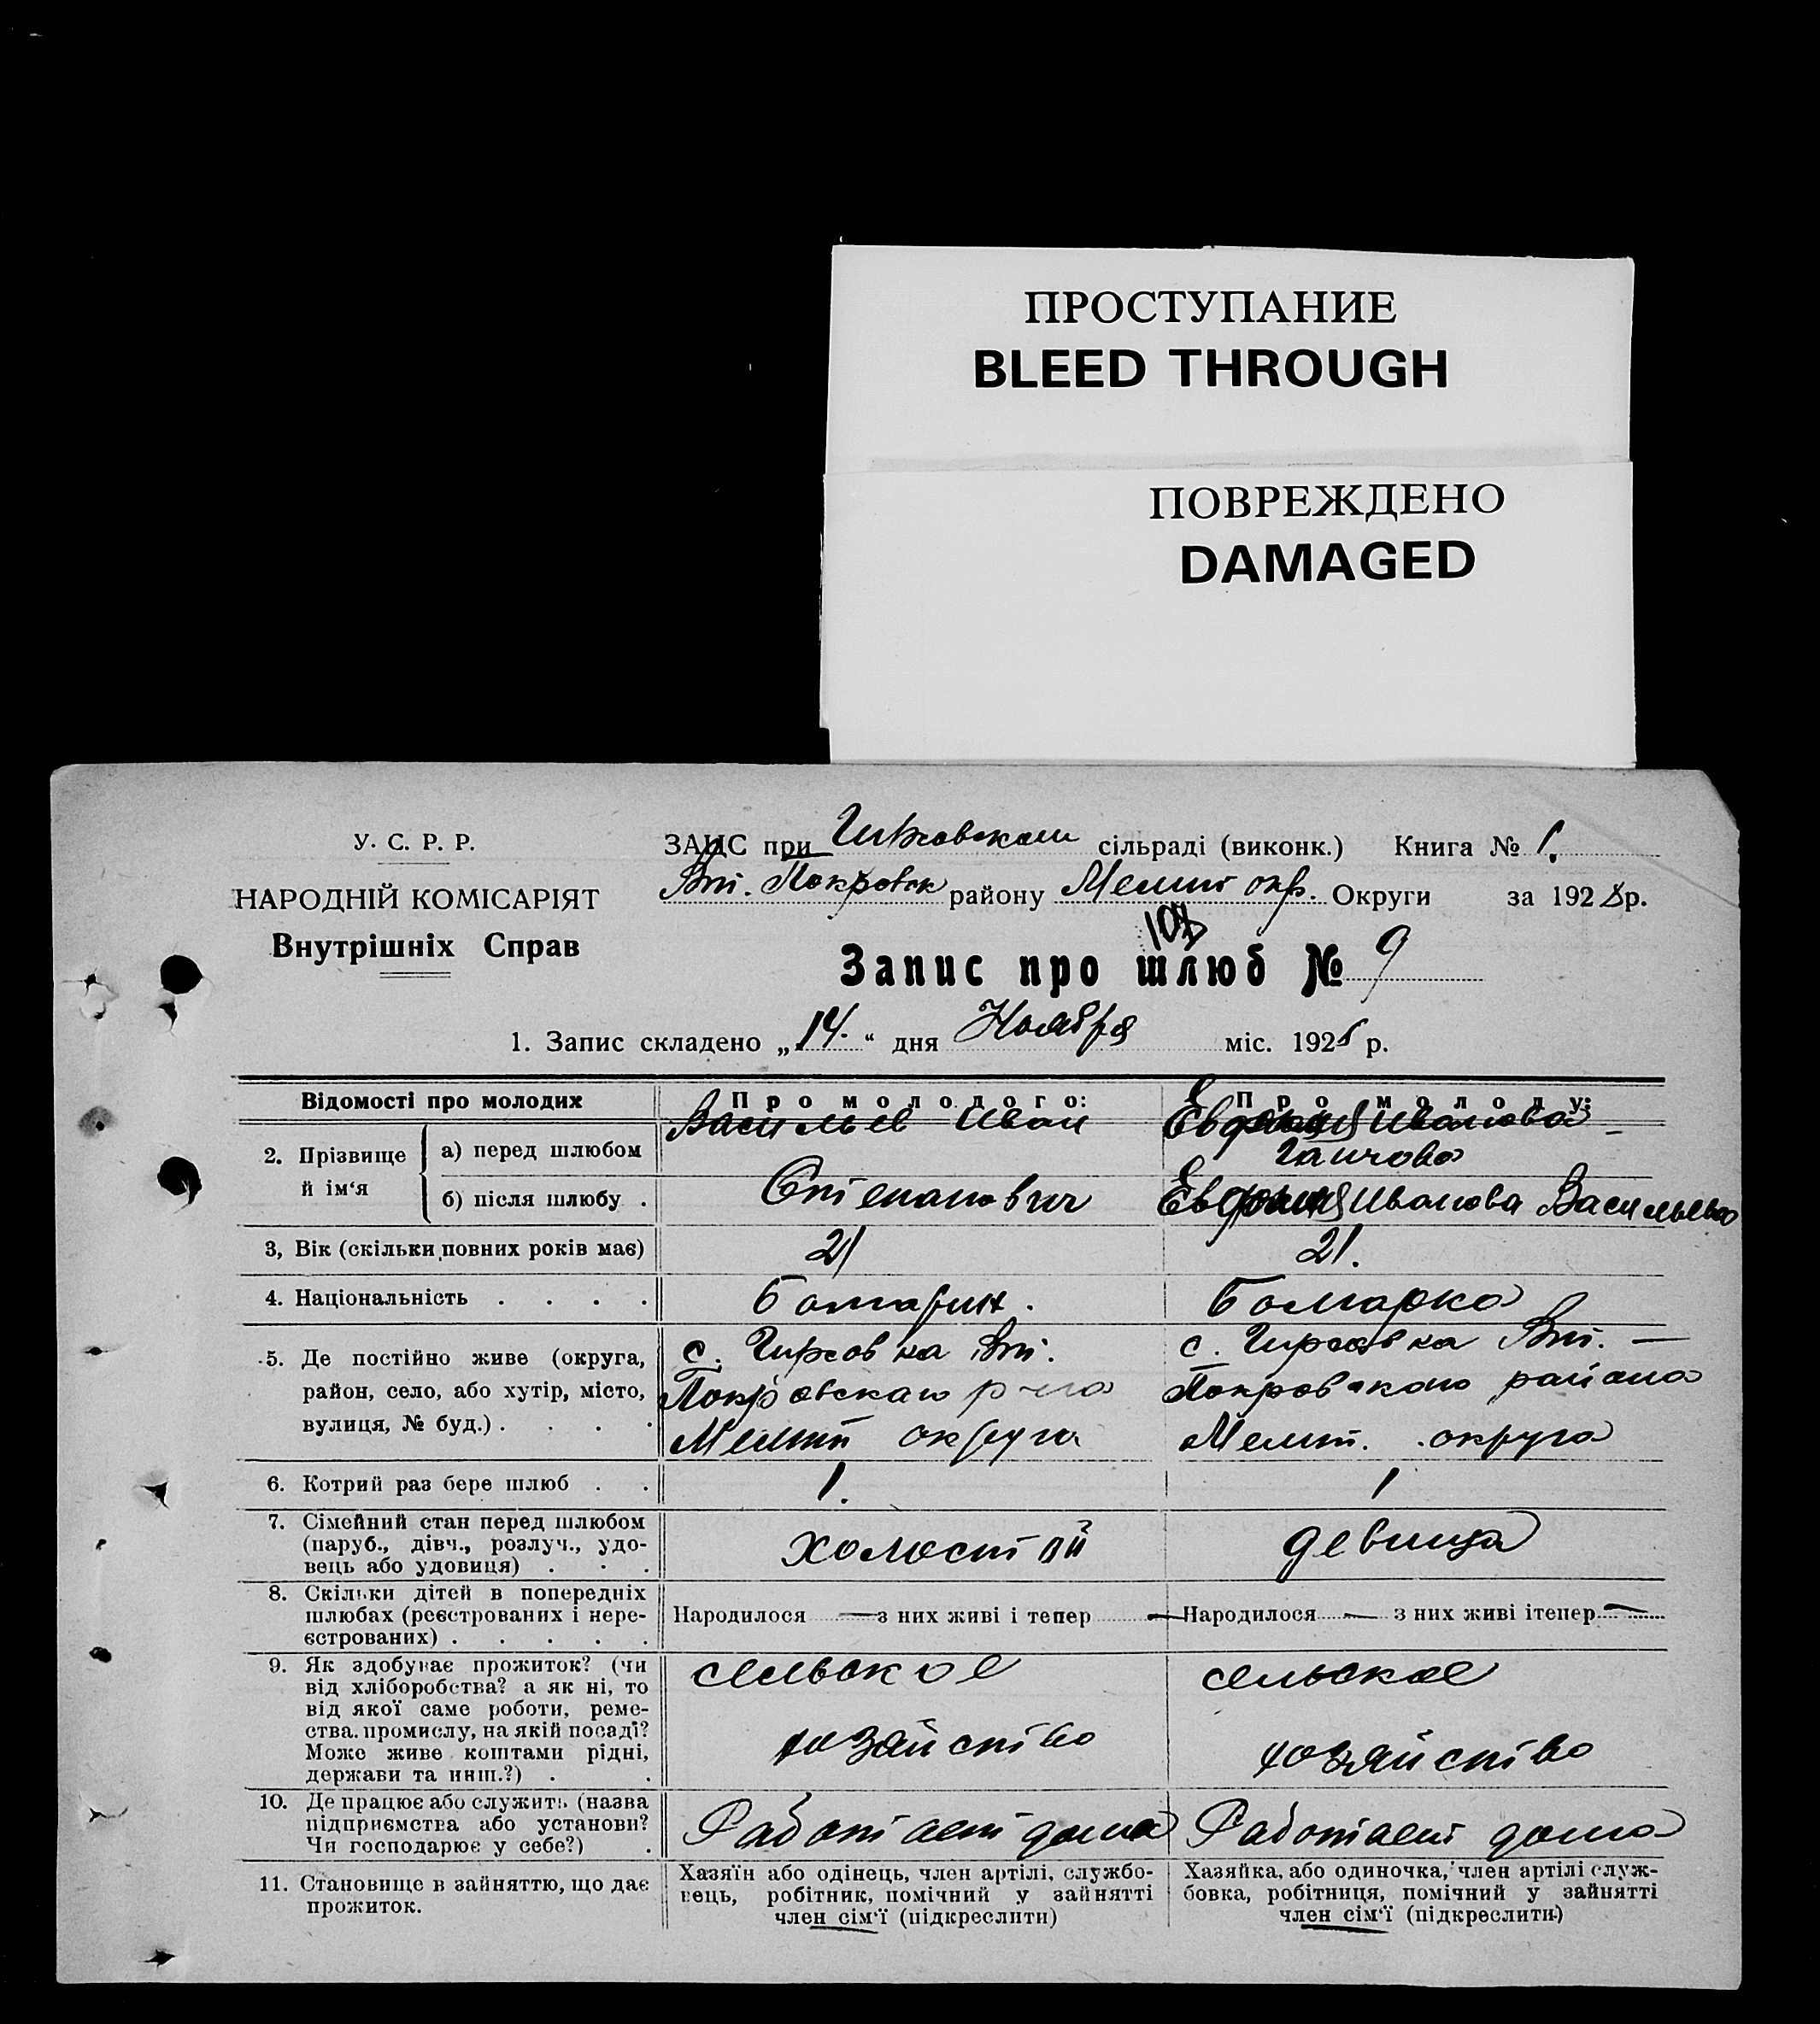 ПРОСТУПАНИЕ
BLEED THROUGH
ПОВРЕЖДЕНО
DAMAGED
У. С. Р. Р.
НАРОДНІЙ КОМІСАРІЯТ
Внутрішніх Справ
ЗАЦС при сільраді (виконк.) Книга № 1.
Вт. Покровск району Мелит окр. Округи за 1928 р.
Запис про шлюб № 9
1. Запис складено „14.“ дня Ноября міс. 192 р.
Відомості про молодих
Про молодого:
Про молоду:
2. Прізвище й ім‘я
а) перед шлюбом
Васильев Иван
Ивановна
б) після шлюбу .
Степанович
Иванова Васильева
3, Вік (скільки повних років має)
21
21.
4. Національність . . . .
Болгарин.
Болгарка
5. Де постійно живе (округа,
район, село, або хутір, місто,
вулиця, № буд.) . . . .
с. Гирсовка Вт.
Покровскаго р-на
Мелит округа
с. Гирсовка Вт. —
Покровского района
Мелит. округа
6. Котрий раз бере шлюб . .
1.
1
7. Сімейний стан перед шлюбом
(паруб., дівч., розлуч., удо-
вець або удовиця) . . .
холостой
девица
8. Скільки дітей в попередніх
шлюбах (реєстрованих і нере-
єстрованих) . . . . .
Народилося — з них живі і тепер —
Народилося — з них живі ітепер —
9. Як здобуває прожиток? (чи
від хліборобства? а як ні, то
від якої саме роботи, реме-
ства. промислу, на якій посаді?
Може живе коштами рідні,
держави та инш.?) . .
сельское
хозяйство
сельское
хозяйство
10. Де працює або служить (назва
підприємства або установи?
Чи господарює у себе?) .
Работает дома
Работает дома
11. Становище в зайняттю, що дає
прожиток.
Хазяїн або одінець, член артілі, службо-
вець, робітник, помічний у зайнятті
член сім‘ї (підкреслити)
Хазяйка, або одиночка, член артілі служ-
бовка, робітниця, помічний у зайнятті
член сім‘ї (підкреслити)